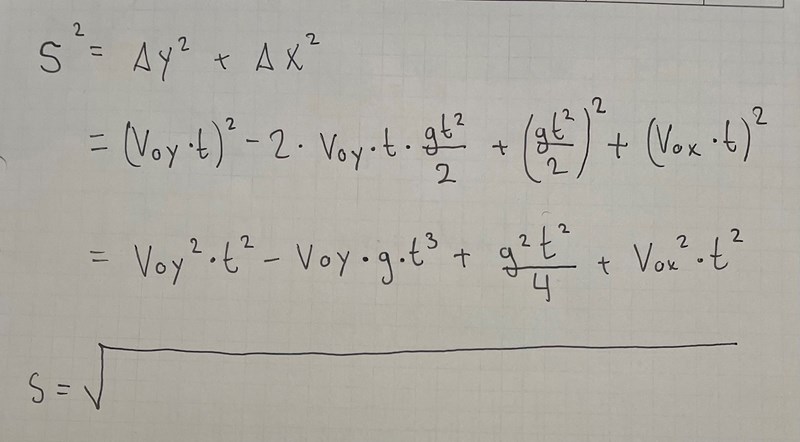 S² = Δy² + Δx²
= (Voy·t)² - 2· Voy·t· gt²/2 + (gt²/2)² + (Vox·t)²
= Voy²·t² - Voy·g·t³ + g²t²/4 + Vox²·t²
S = √